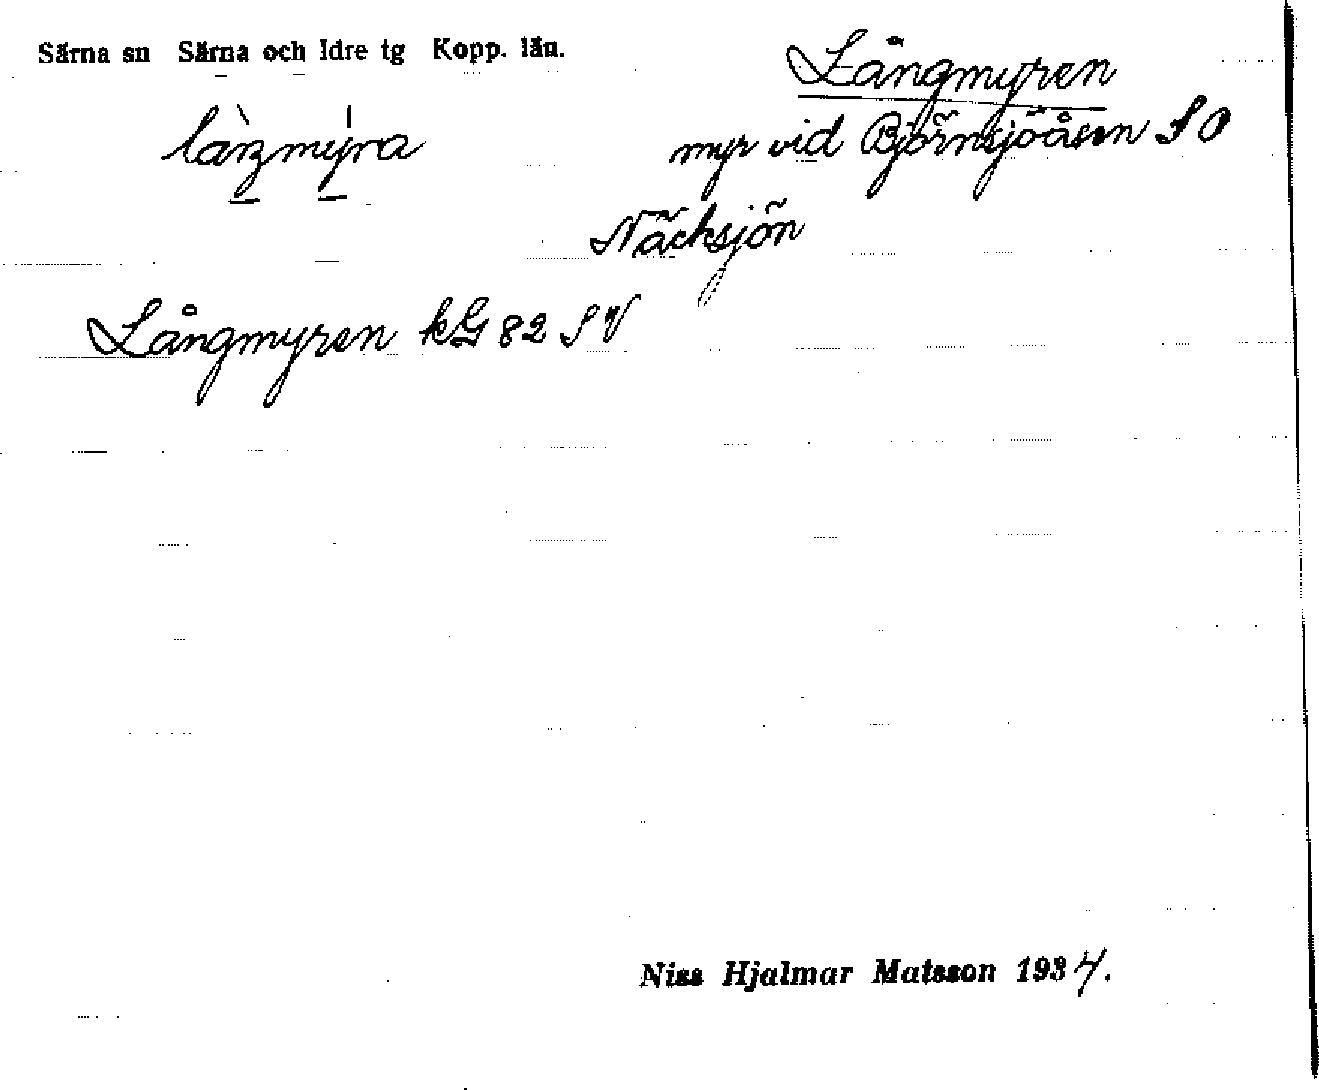 Särna sn Särna och Idre tg Kopp. län.
Långmyren
làŋmy̍ra
myr vid Björnsjöåsen SO
Näcksjön
Långmyren kG 82 SV
Niss Hjalmar Matsson 1934.